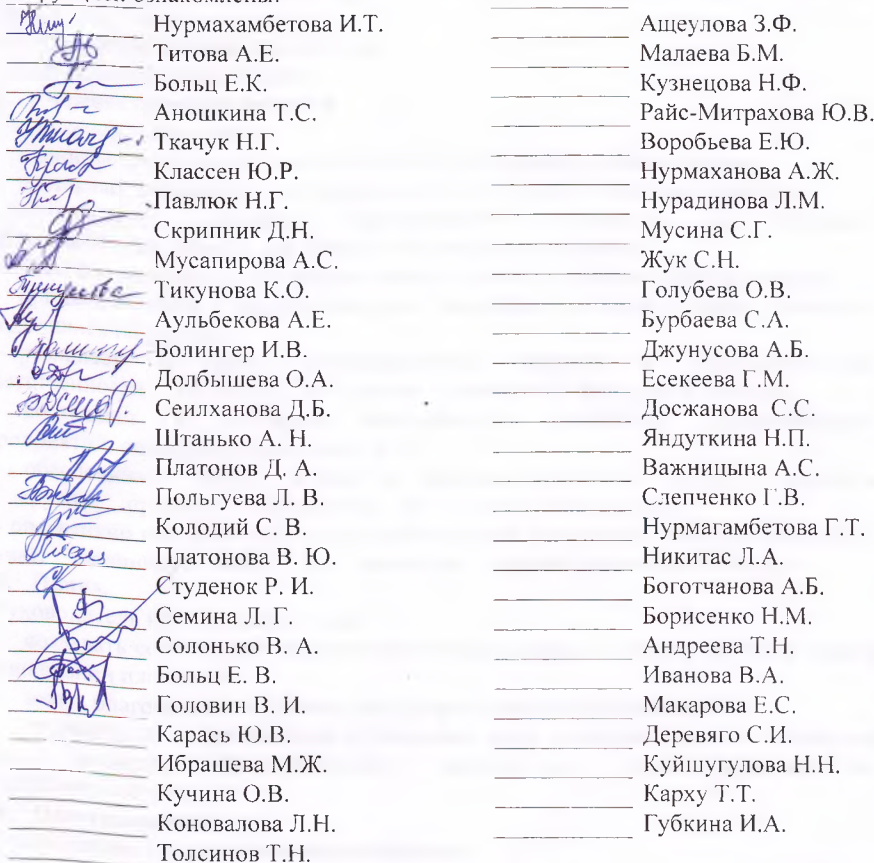 ознакомлены:
Нурмахамбетова И.Т.
Титова А.Е.
Больц Е.К.
Аношкина Т.С.
Ткачук Н.Г.
Классен Ю.Р.
Павлюк Н.Г.
Скрипник Д.Н.
Мусапирова А.С.
Тикунова К.О.
Аульбекова А.Е.
Болингер И.В.
Долбышева О.А.
Сеилханова Д.Б.
Штанько А. Н.
Платонов Д. А.
Польгуева Л. В.
Колодий С. В.
Платонова В. Ю.
Студенок Р. И.
Семина Л. Г.
Солонько В. А.
Больц Е. В.
Головин В. И.
Карась Ю.В.
Ибрашева М.Ж.
Кучина О.В.
Коновалова Л.Н.
Толсинов Т.Н.
Ащеулова З.Ф.
Малаева Б.М.
Кузнецова Н.Ф.
Райс-Митрахова Ю.В.
Воробьева Е.Ю.
Нурмаханова А.Ж.
Нурадинова Л.М.
Мусина С.Г.
Жук С.Н.
Голубева О.В.
Бурбаева С.А.
Джунусова А.Б.
Есекеева Г.М.
Досжанова С.С.
Яндуткина Н.П.
Важницына А.С.
Слепченко Г.В.
Нурмагамбетова Г.Т.
Никитас Л.А.
Боготчанова А.Б.
Борисенко Н.М.
Андреева Т.Н.
Иванова В.А.
Макарова Е.С.
Деревяго С.И.
Куйшугулова Н.Н.
Карху Т.Т.
Губкина И.А.